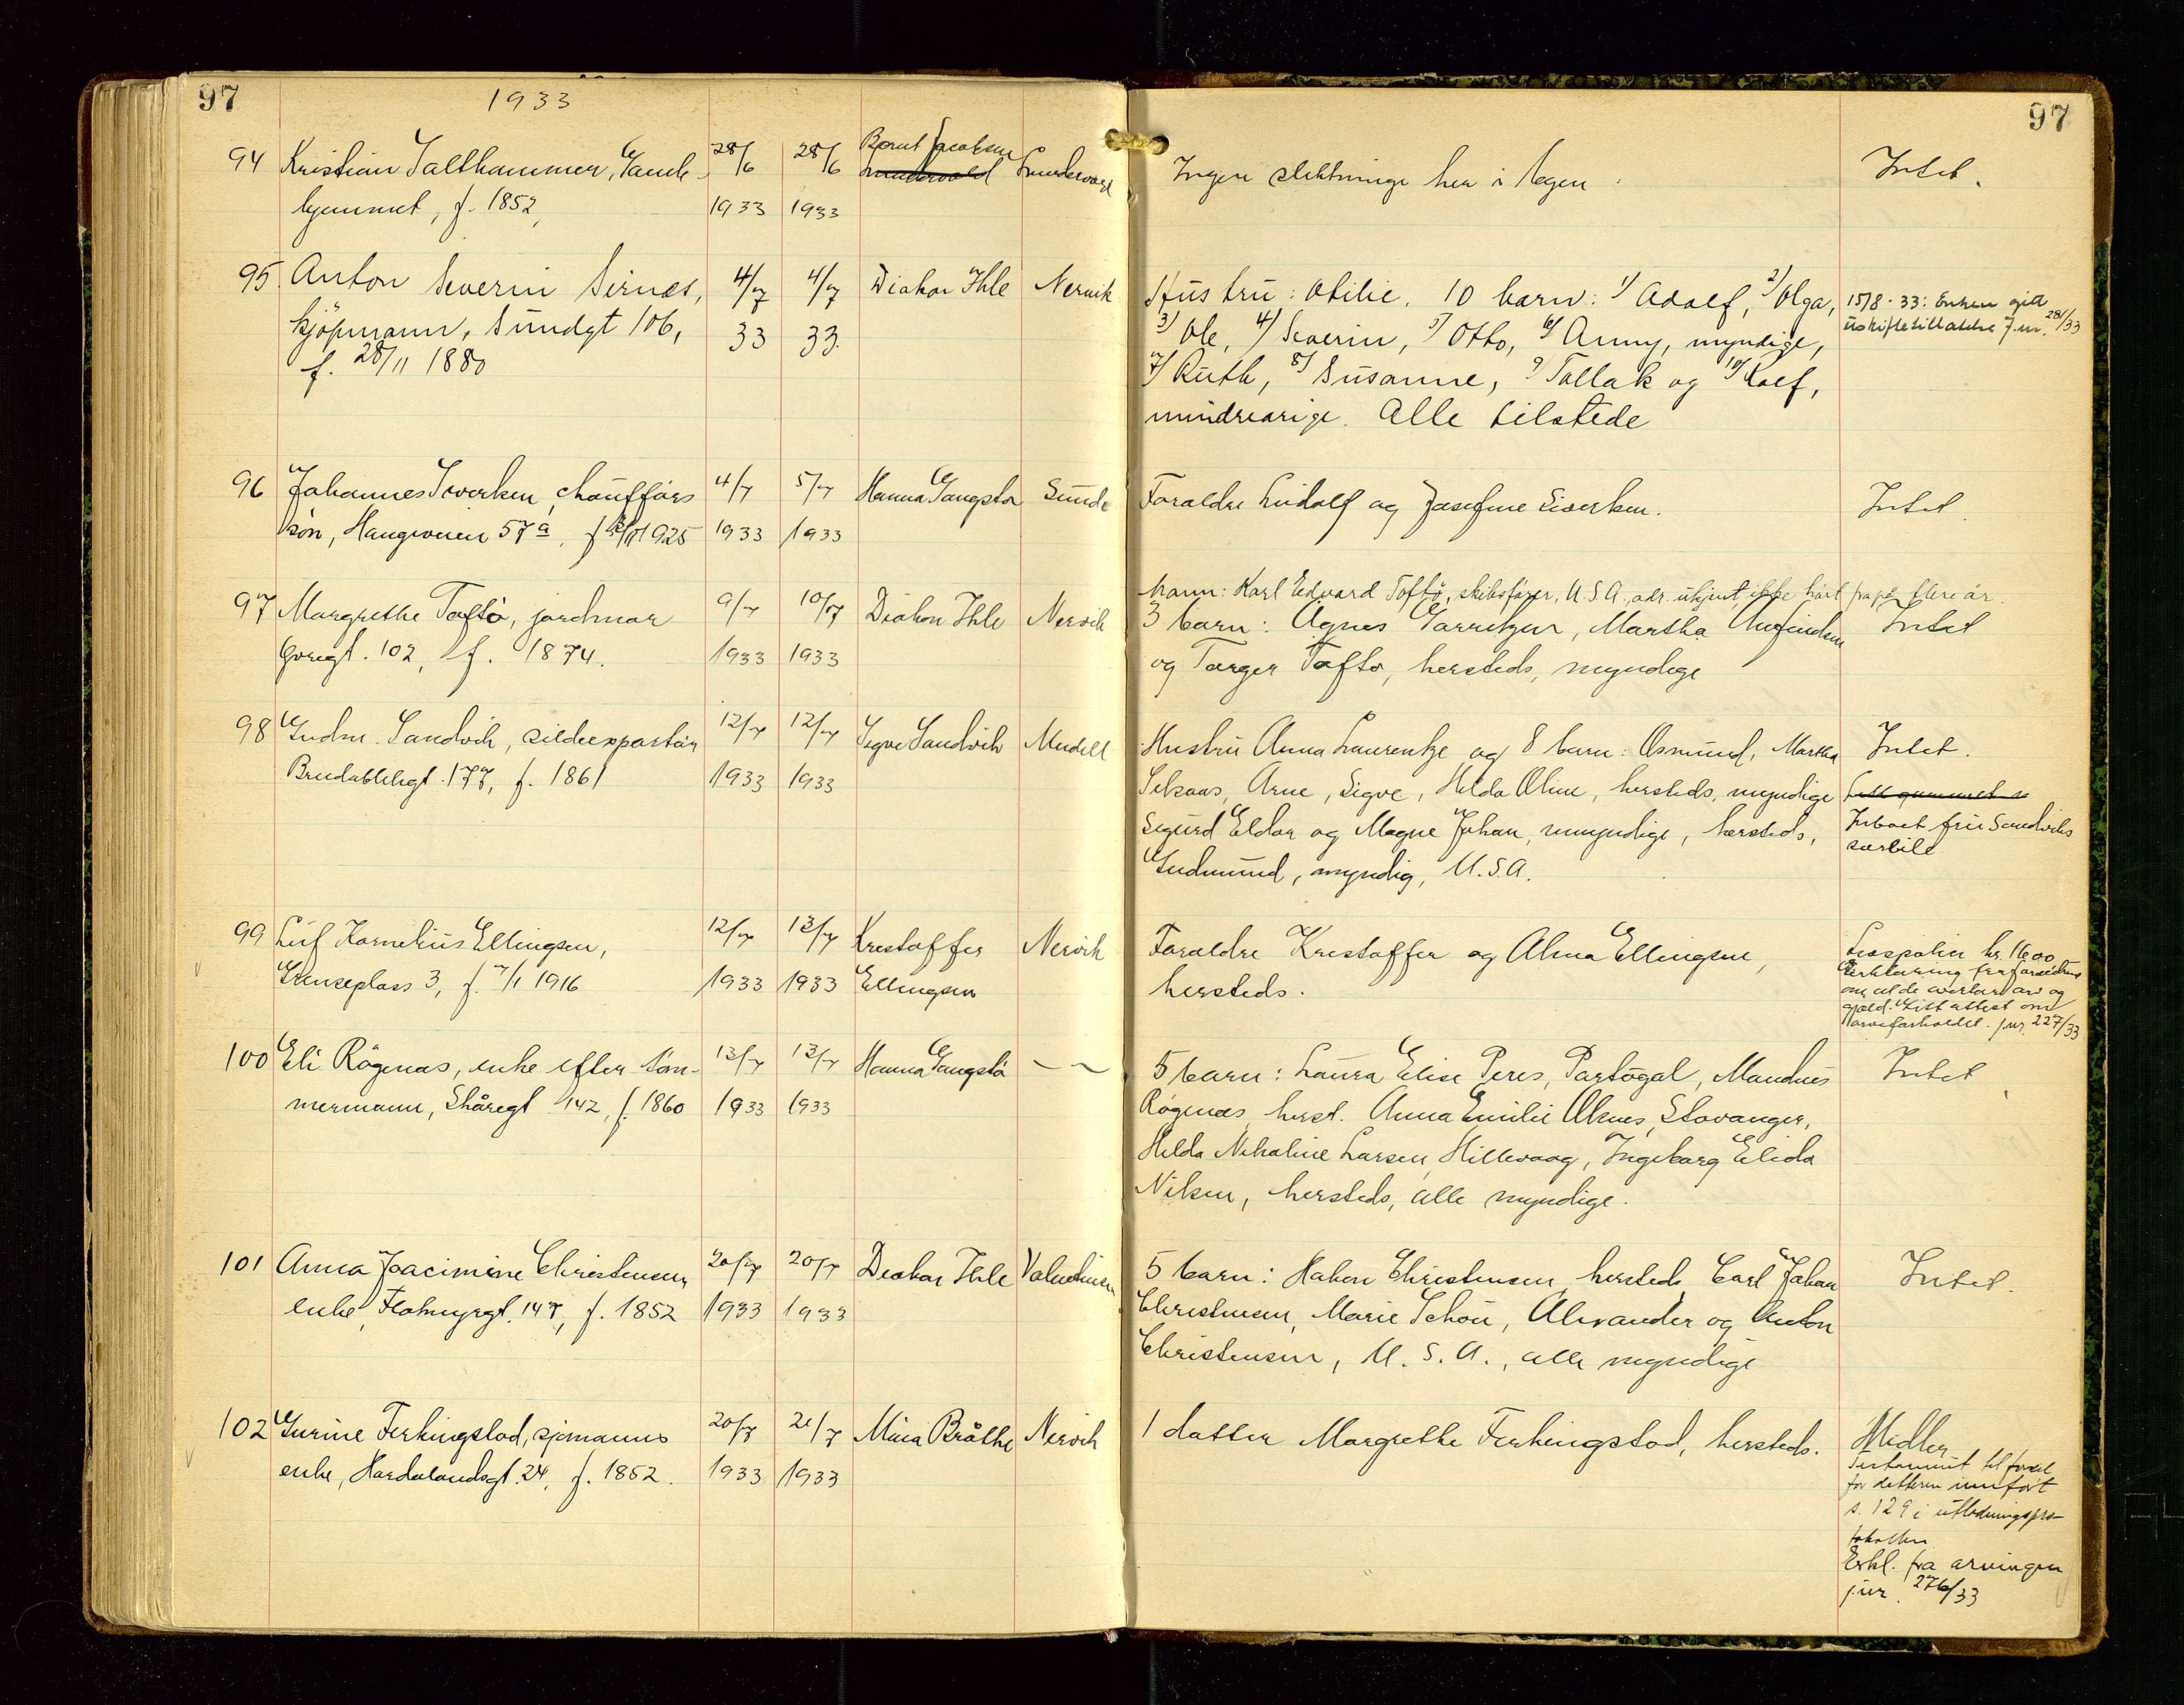 97 1933 97
94 Kristian Salthammer, Gamle- 28/6 28/6 Bernt Jacobsen Ingen slektninge her i byen. Intet.
hjemmet, f. 1852, 1933 1933
95 Anton Severin Sirnes, 4/7 4/7 Diakon Ihle Nervik Hustru: Otilie. 10 barn: 1/ Adolf, 2/ Olga, 15/8-33: Enken gitt
kjöpmann, Sundgt 106, 33 33 3/ Ole, 4/ Severin, 5/ Otto, 6/ Anny, myndige, uskiftetillatelse J.nr. 281/33
f. 28/11 1880 7/ Ruth, 8/ Susanne, 9/ Tallak og 10/ Rolf,
mindreårige. Alle tilstede
96 Johannes Sivertsen, chaufförs 4/7 5/7 Hanna Gangstø Sunde Foreldre Ludolf og Josefine Sivertsen. Intet.
sön, Haugeveien 57 a, f. 1925 1933 1933
Mann: Karl Edvard Toftö, skibsförer, U.S.A., adr. ukjent, ikke hört fra på flere år.
97 Margrethe Toftö, jordmor 9/7 10/7 Diakon Ihle Nervik 3 barn: Agnes Garretzen, Martha Anfindsen Intet
Övregt. 102, f. 1874. 1933 1933 og Torger Toftö, hersteds, myndige
98 Gudm. Sandvik, sildeexportör 12/7 12/7 Sigve Sandvik Mudell Hustru Anna Laurentze og 8 barn: Osmund, Martha Intet.
Breidablikgt. 177, f. 1861 1933 1933 Selsaas, Arne, Sigve, Hilda Oline, hersteds, myndige
Sigurd Eldor og Magne Johan, umyndige, hersteds, Inboet fru Sandviks
Gudmund, myndig, U.S.A. særeie
99 Leif Kornelius Ellingsen, 12/7 13/7 Kristoffer Nervik Foreldre Kristoffer og Alma Ellingsen, Livspolise kr. 1600
Grenseplass 3, f. 7/1 1916 1933 1933 Ellingsen hersteds. Erklæring fra foreldrene
om at de overtar arv og
gjeld. Gitt attest om
arveforholdet. jnr. 227/33
100 Eli Rögenes, enke efter töm- 13/7 13/7 Hanna Gangstö 5 barn: Laura Elise Peres, Portugal, Mandius Intet
mermann, Skåregt 142, f. 1860 1933 1933 Rögenes, herst. Anna Emilie Alsnes, Stavanger,
Hilda Nikoline Larsen, Hillevaag, Ingeborg Elida
Nilsen, hersteds, alle myndige.
101 Anna Joacimine Christensen, 20/7 20/7 Diakon Ihle Valentinsen 5 barn: Hakon Christensen, hersteds, Carl Johan Intet.
enke, Flotmyrgt. 147, f. 1852 1933 1933 Christensen, Marie Schou, Alexander og Anton
Christensen, U.S.A., alle myndige
102 Gurine Ferkingstad, sjömanns 20/7 21/7 Mina Bråthe Nervik 1 datter Margrethe Ferkingstad, hersteds. Midler
enke, Hordalandsgt. 24, f. 1852. 1933 1933 Testament til fordel
for datteren innfört
s. 129 i utlodningspro-
tokollen
Erkl. fra arvingen
jnr. 276/33